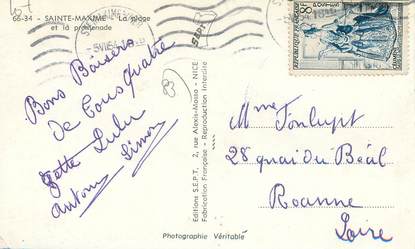 66-34 - SAINTE-MAXIME - La plage
et la promenade
Bons Baisers
de tous quatre
Zette Lulu
Antony Simon
Editions S.E.P.T. 2, rue Alexis-Mossa - NICE
Fabrication Française - Reproduction Interdite
S.E.P.T.
Mme Fonlupt
28 quai du Béal
Roanne
Loire
Photographie Véritable